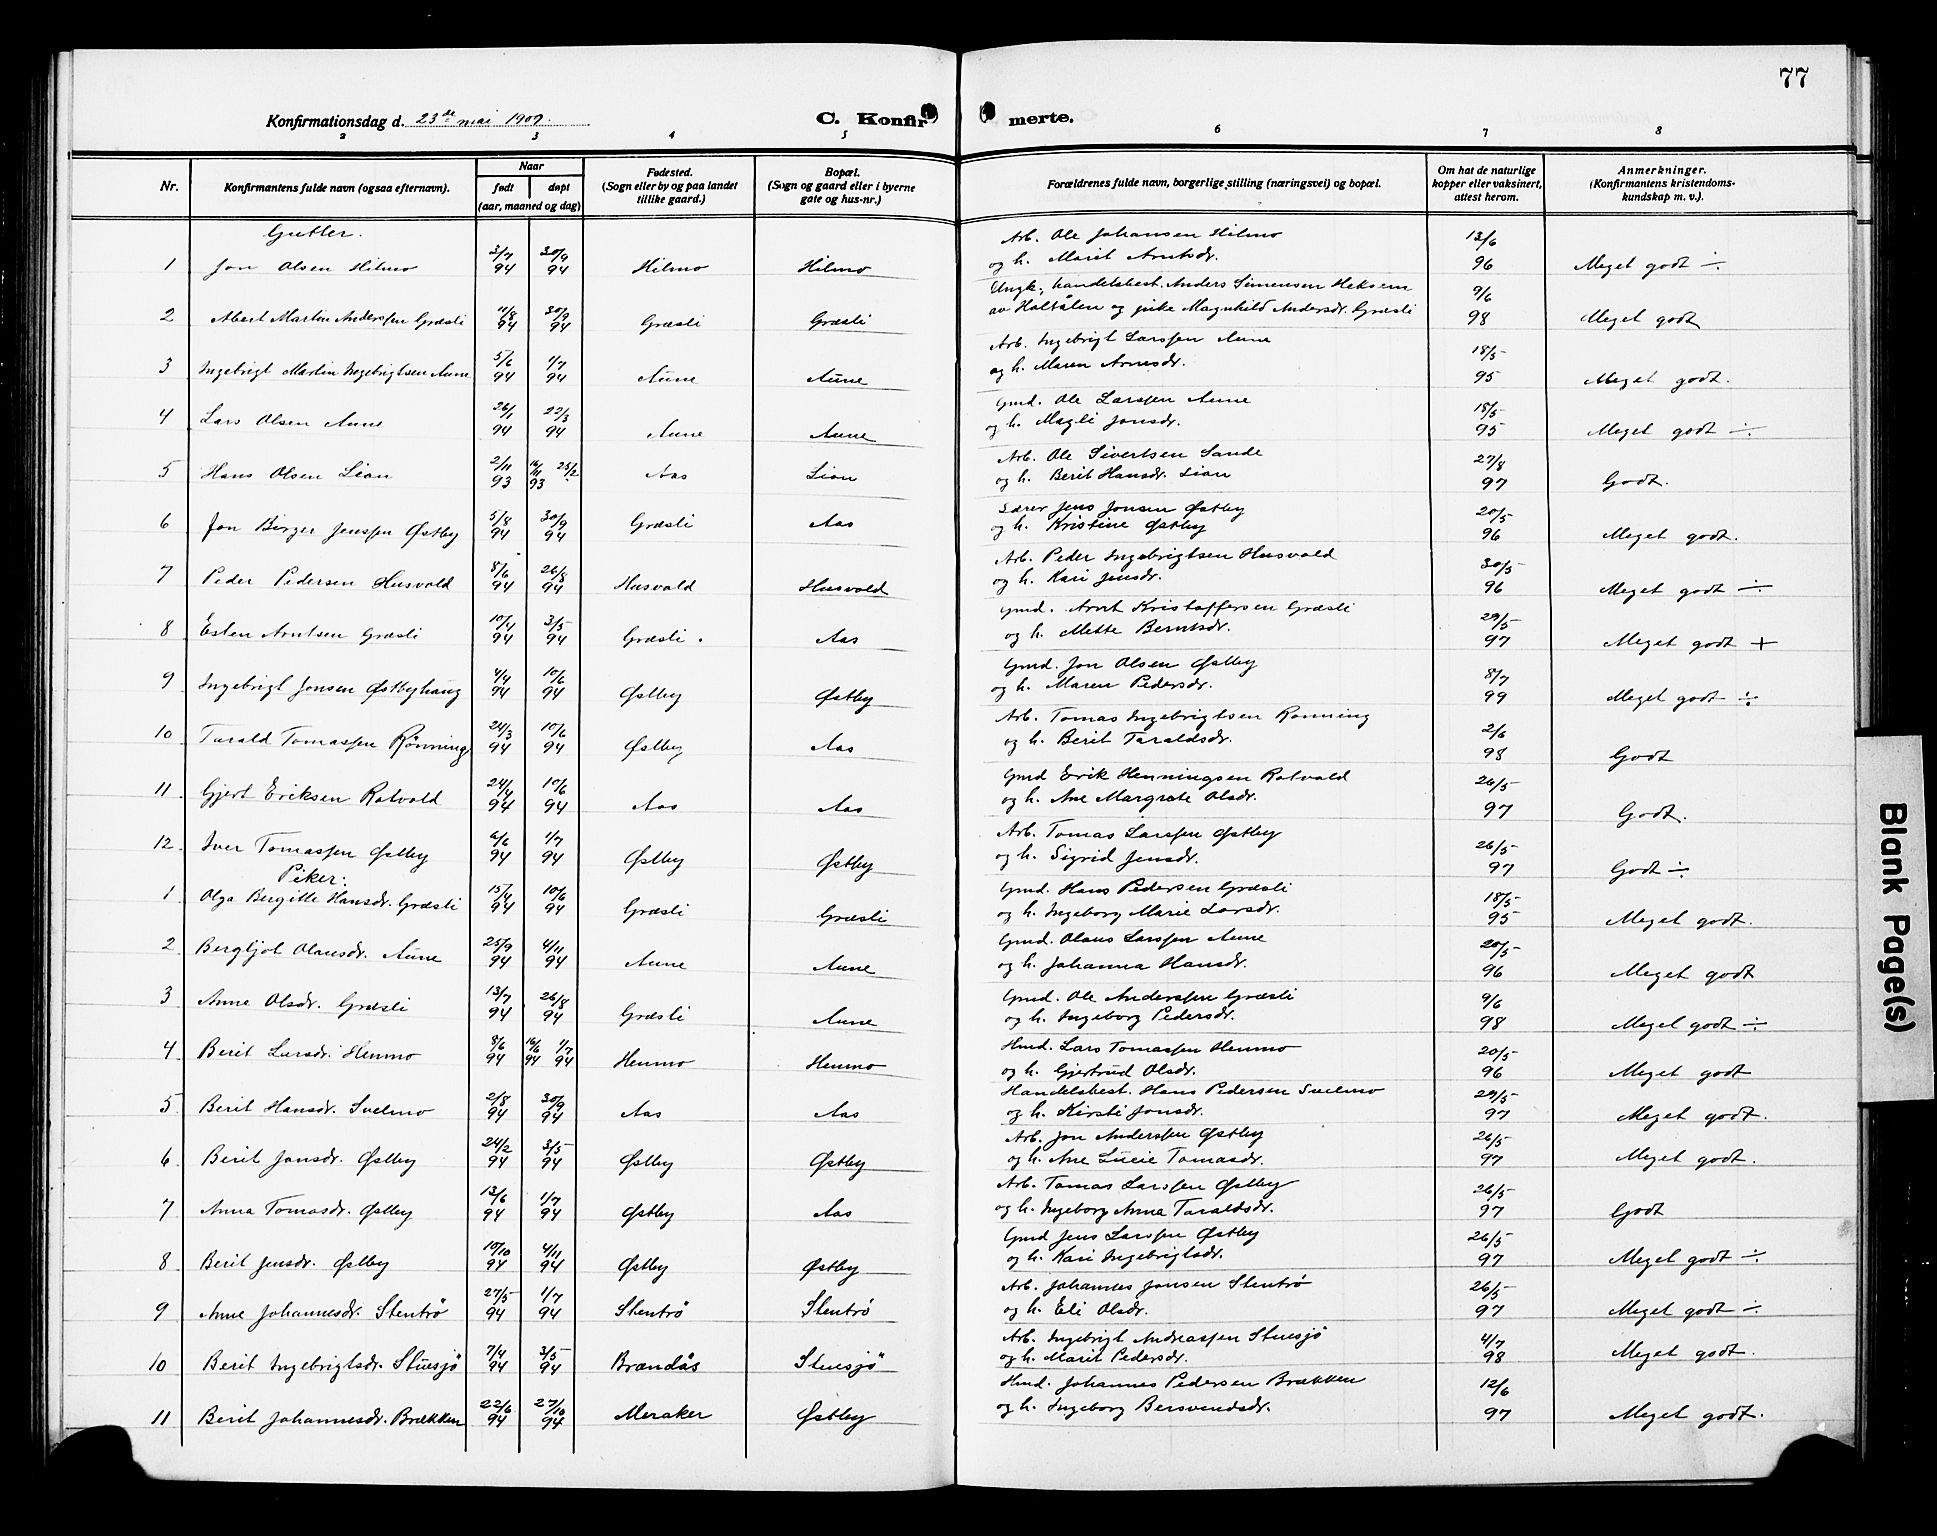 77
Konfirmationsdag d. 23de mai 1909.
C. Konfirmerte.
2 3 4 5 6 7 8
Nr. Konfirmantens fulde navn (ogsaa efternavn). Naar født døpt (aar, maaned og dag) Fødested. (Sogn eller by og paa landet tillike gaard.) Bopæl. (Sogn og gaard eller i byerne gate og hus-nr.) Forældrenes fulde navn, borgerlige stilling (næringsvei) og bopæl. Om hat de naturlige kopper eller vaksinert, attest herom. Anmerkninger. (Konfirmantens kristendoms-kundskap m. v.).
Gutter.
1 Jon Olsen Hilmo 3/7 94 30/9 94 Hilmo Hilmo Arb. Ole Johansen Hilmo og h. Marit Arntsdr. 13/6 96 Meget godt ÷
2 Albert Martin Anderssen Græsli 11/8 94 30/9 94 Græsli Græsli Ungk., handelsbest. Anders Simensen Heksem av Holtålen og pike Magnhild Andersdr. Græsli 9/6 98 Meget godt
3 Ingebrigt Martin Ingebrigtsen Aune 5/6 94 1/7 94 Aune Aune Arb. Ingebrigt Larssen Aune og h. Maren Arnesdr. 18/5 95 Meget godt.
4 Lars Olsen Aune 26/1 94 22/3 94 Aune Aune Gmd. Ole Larssen Aune og h. Magli Jonsdr. 18/5 95 Meget godt ÷
5 Hans Olsen Lian 2/11 93 16/11 93 25/2 Aas Lian Arb. Ole Sivertsen Sande og h. Berit Hansdr. Lian 27/8 97 Godt.
6 Jon Birger Jenssen Østby 5/8 94 30/9 94 Græsli Aas Lærer Jens Jonsen Østby og h. Kristine Østby 20/5 96 Meget godt.
7 Peder Pedersen Husvold 8/6 94 26/8 94 Husvold Husvold Arb. Peder Ingebrigtsen Husvold og h. Kari Jensdr. 30/5 96 Meget godt ÷
8 Esten Arntsen Græsli 10/4 94 3/5 94 Græsli. Aas Gmd. Arnt Kristoffersen Græsli og h. Mette Berntsdr. 29/5 97 Meget godt +
9 Ingebrigt Jonsen Østbyhaug 4/4 94 10/6 94 Østby Østby Gmd. Jon Olsen Østby og h. Maren Pedersdr. 8/7 99 Meget godt ÷
10 Tarald Tomassen Rønning 24/3 94 10/6 94 Østby Aas Arb. Tomas Ingebrigtsen Rønning og h. Berit Taraldsdr. 2/6 98 Godt
11 Gjert Eriksen Rotvold 24/4 94 10/6 94 Aas Aas Gmd Erik Henningsen Rotvold og h. Ane Margrete Olsdr. 26/5 97 Godt.
12 Iver Tomassen Østby 6/6 94 1/7 94 Østby Østby Arb. Tomas Larssen Østby og h. Sigrid Jensdr. 26/5 97 Godt ÷
Piker:
1 Olga Bergitte Hansdr. Græsli 15/4 94 10/6 94 Græsli Græsli Gmd. Hans Pedersen Græsli og h. Ingeborg Marie Larsdr. 18/5 95 Meget godt.
2 Bergljot Olausdr. Aune 25/9 94 4/11 94 Aune Aune Gmd. Olaus Larssen Aune og h. Johanna Hansdr. 20/5 96 Meget godt
3 Anne Olsdr. Græsli 13/7 94 26/8 94 Græsli Aune Gmd. Ole Anderssen Græsli og h. Ingeborg Pedersdr. 9/6 98 Meget godt ÷
4 Berit Larsdr. Henmo 8/6 94 16/6 94 1/7 94 Henmo Henmo Hmd. Lars Tomassen Henmo og h. Gjertrud Olsdr. 20/5 96 Meget godt
5 Berit Hansdr. Svelmo 2/8 94 30/9 94 Aas Aas Handelsbest. Hans Pedersen Svelmo og h. Kirsti Jonsdr. 29/5 97 Meget godt.
6 Berit Jonsdr. Østby 24/2 94 3/5 94 Østby Østby Arb. Jon Anderssen Østby og h. Ane Lucie Tomasdr. 26/5 97 Meget godt.
7 Anna Tomasdr. Østby 13/6 94 1/7 94 Østby Aas Arb. Tomas Larssen Østby og h. Ingeborg Anna Taraldsdr. 26/5 97 Godt
8 Berit Jensdr. Østby 10/10 94 4/11 94 Østby Østby Gmd Jens Larssen Østby og h. Kari Ingebrigtsdr. 26/5 97 Meget godt ÷
9 Anne Johannesdr. Stentrö 27/5 94 1/7 94 Stentrö Stentrö Arb. Johannes Jonsen Stentrö og h. Eli Olsdr. 26/5 97 Meget godt ÷
10 Berit Ingebrigtsdr. Stuesjö 7/4 94 3/5 94 Brændås Stuesjö Arb. Ingebrigt Andreassen Stuesjö og h. Marit Pedersdr. 4/7 98 Meget godt.
11 Berit Johannesdr. Brækken 22/6 94 27/10 94 Meraker Østby Hmd. Johannes Pedersen Brækken og h. Ingeborg Bersvendsdr. 12/6 97 Meget godt.
Blank Page(s)